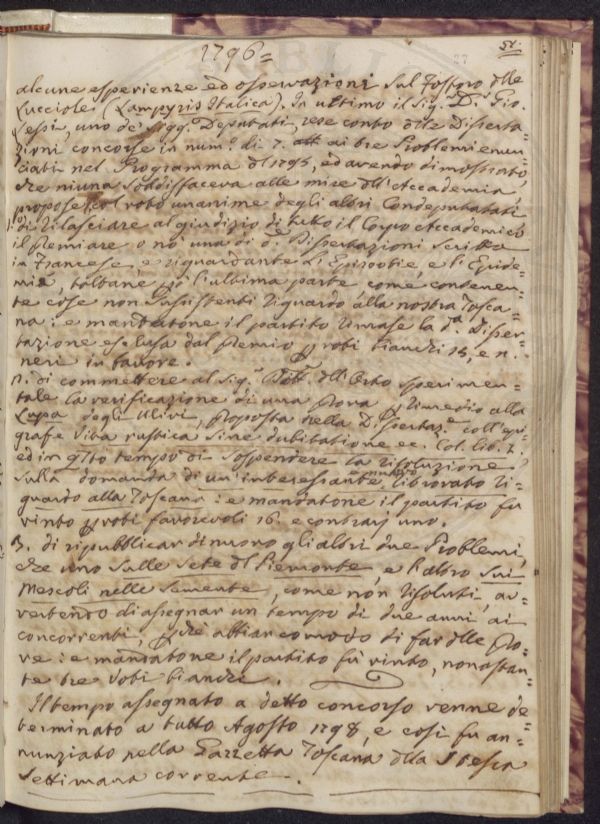 1796=
51.
27
alcune esperienze ed osservazioni sul Fosforo delle
Lucciole (Lampyris Italica). In ultimo il Sig.r D.r Gio.
Lessi, uno de' Sigg. Deputati, rese conto delle Disserta=
zioni concorse in num.o di 7. ai tre Problemi enun=
ciati nel Programma del 1795, ed avendo dimostrato,
che niuna soddisfaceva alle mire dell'Accademia,
propose, col voto unanime degli altri Condeputatati
1.o di rilasciare al giudizio di tutto il Corpo Accademico
il premiare o nò una di d.e Dissertazioni scritta
in Francese, e riguardante l'Epizootie e l'Epide=
mie, toltane però l'ultima parte come contenen=
te cose non sussistenti riguardo alla nostra Tosca=
na: e mandatone il partito rimase la d.a Disser=
tazione esclusa dal premio per voti bianchi 15, e n.
neri in favore.
2. di commettere al Sig.r Dott. dell'Orto sperimen=
tale la verificazione di una prova per rimedio alla
Lupa degli Ulivi, proposta nella Dissertaz.e coll'epi=
grafe Viba rustica sine dubitatione ec. Col. lib. 2.
ed in q.sto tempo di sospendere la risoluzione
sulla domanda di un interessante nuovo ritrovato ri=
guardo alla Toscana: e mandatone il partito fu
vinto per voti favorevoli 16. e contrarj uno.
3. di ripubblicar di nuovo gli altri due Problemi,
che uno sulle Sete del Piemonte, e l'altro sui
Mescoli nelle Semente, come non risoluti, av=
vertendo di assegnar un tempo di due anni ai
concorrenti, perchè abbian comodo di far delle pro=
ve: e mandatone il partito fù vinto, nonostan=
te tre voti bianchi.
Il tempo assegnato a detto concorso venne de=
terminato a tutto Agosto 1798, e così fu an=
nunziato nella Gazzetta Toscana della stessa
settimana corrente.